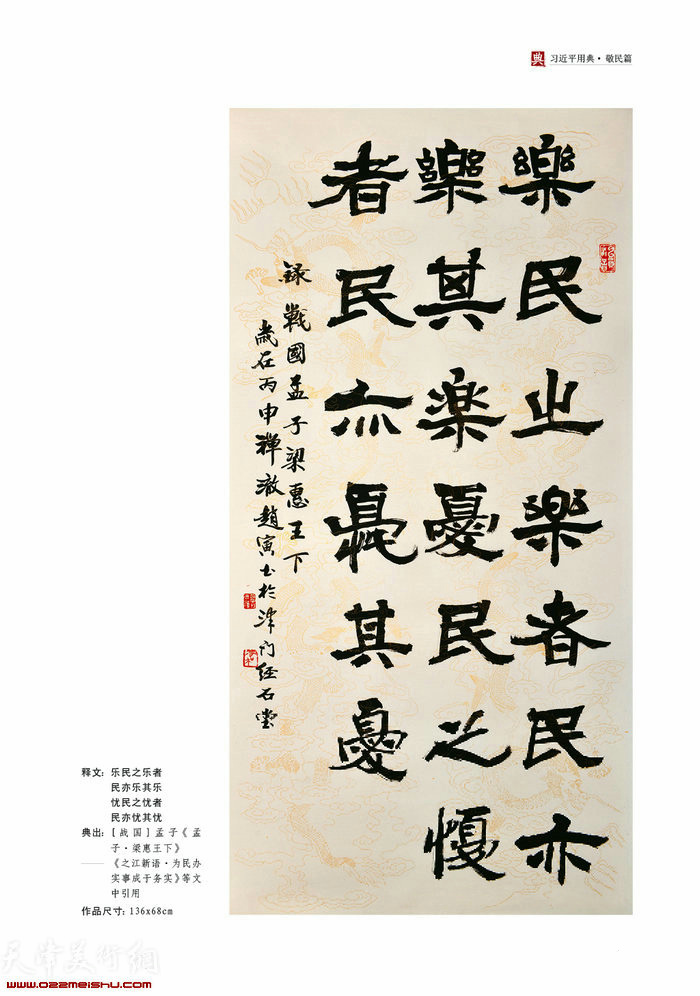 典 习近平用典·敬民篇
樂民之樂者民亦
樂其樂憂民之憂
者民亦憂其憂
録戰國孟子梁惠王下
歲在丙申禪澈趙寅書於津门经石堂
释文：乐民之乐者
民亦乐其乐
忧民之忧者
民亦忧其忧
典出：[战国]孟子《孟
子·梁惠王下》
——《之江新语·为民办
实事成于务实》等文
中引用
作品尺寸：136x68cm
天津美術網
www.022meishu.com